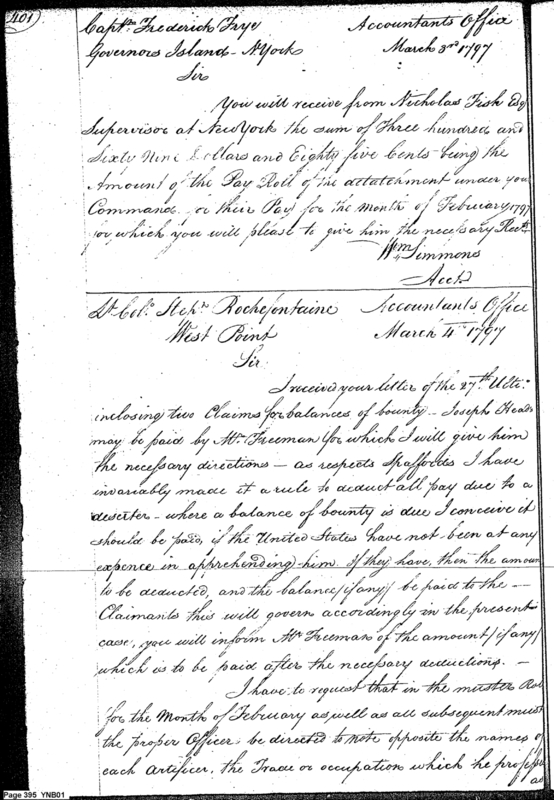 401
Capt.n Frederick Frye Accountants Office
Governors Island - NYork March 3rd 1797
Sir
You will receive from Nicholas Fish Esq
Supervisor at New York the sum of Three hundred and
Sixty Nine Dollars and Eighty five Cents being the
Amount of the Pay Roll of the detatchment under you
Command for their Pay for the Month of February 1797
for which you will please to give him the necessary Rects
Wm Simmons
Acct
Lt Colo Stepn Rochefontaine Accountants Office
West Point March 4th 1797
Sir
I receiv'd your letter of the 27th Ulto
inclosing two Claims for balances of bounty - Joseph Heads
may be paid by Mr Freeman for which I will give him
the necessary directions - as respects Spaffords I have
invariably made it a rule to deduct all pay due to a
deserter - where a balance of bounty is due I conceive it
should be paid, if the United States have not been at any
expence in apprehinding him. if they have, then the amoun
to be deducted, and the balance /if any/ be paid to the -
Claimants this will govern accordingly in the present
case, you will inform Mr Freeman of the amount /if any/
which is to be paid after the necessary deductions. -
I have to request that in the muster Rol
for the Month of February as well as all subsequent must
the proper Officer be directed to note opposite the names of
each Artificer, the Trade or occupation which he profess
as
Page 395 YNB01